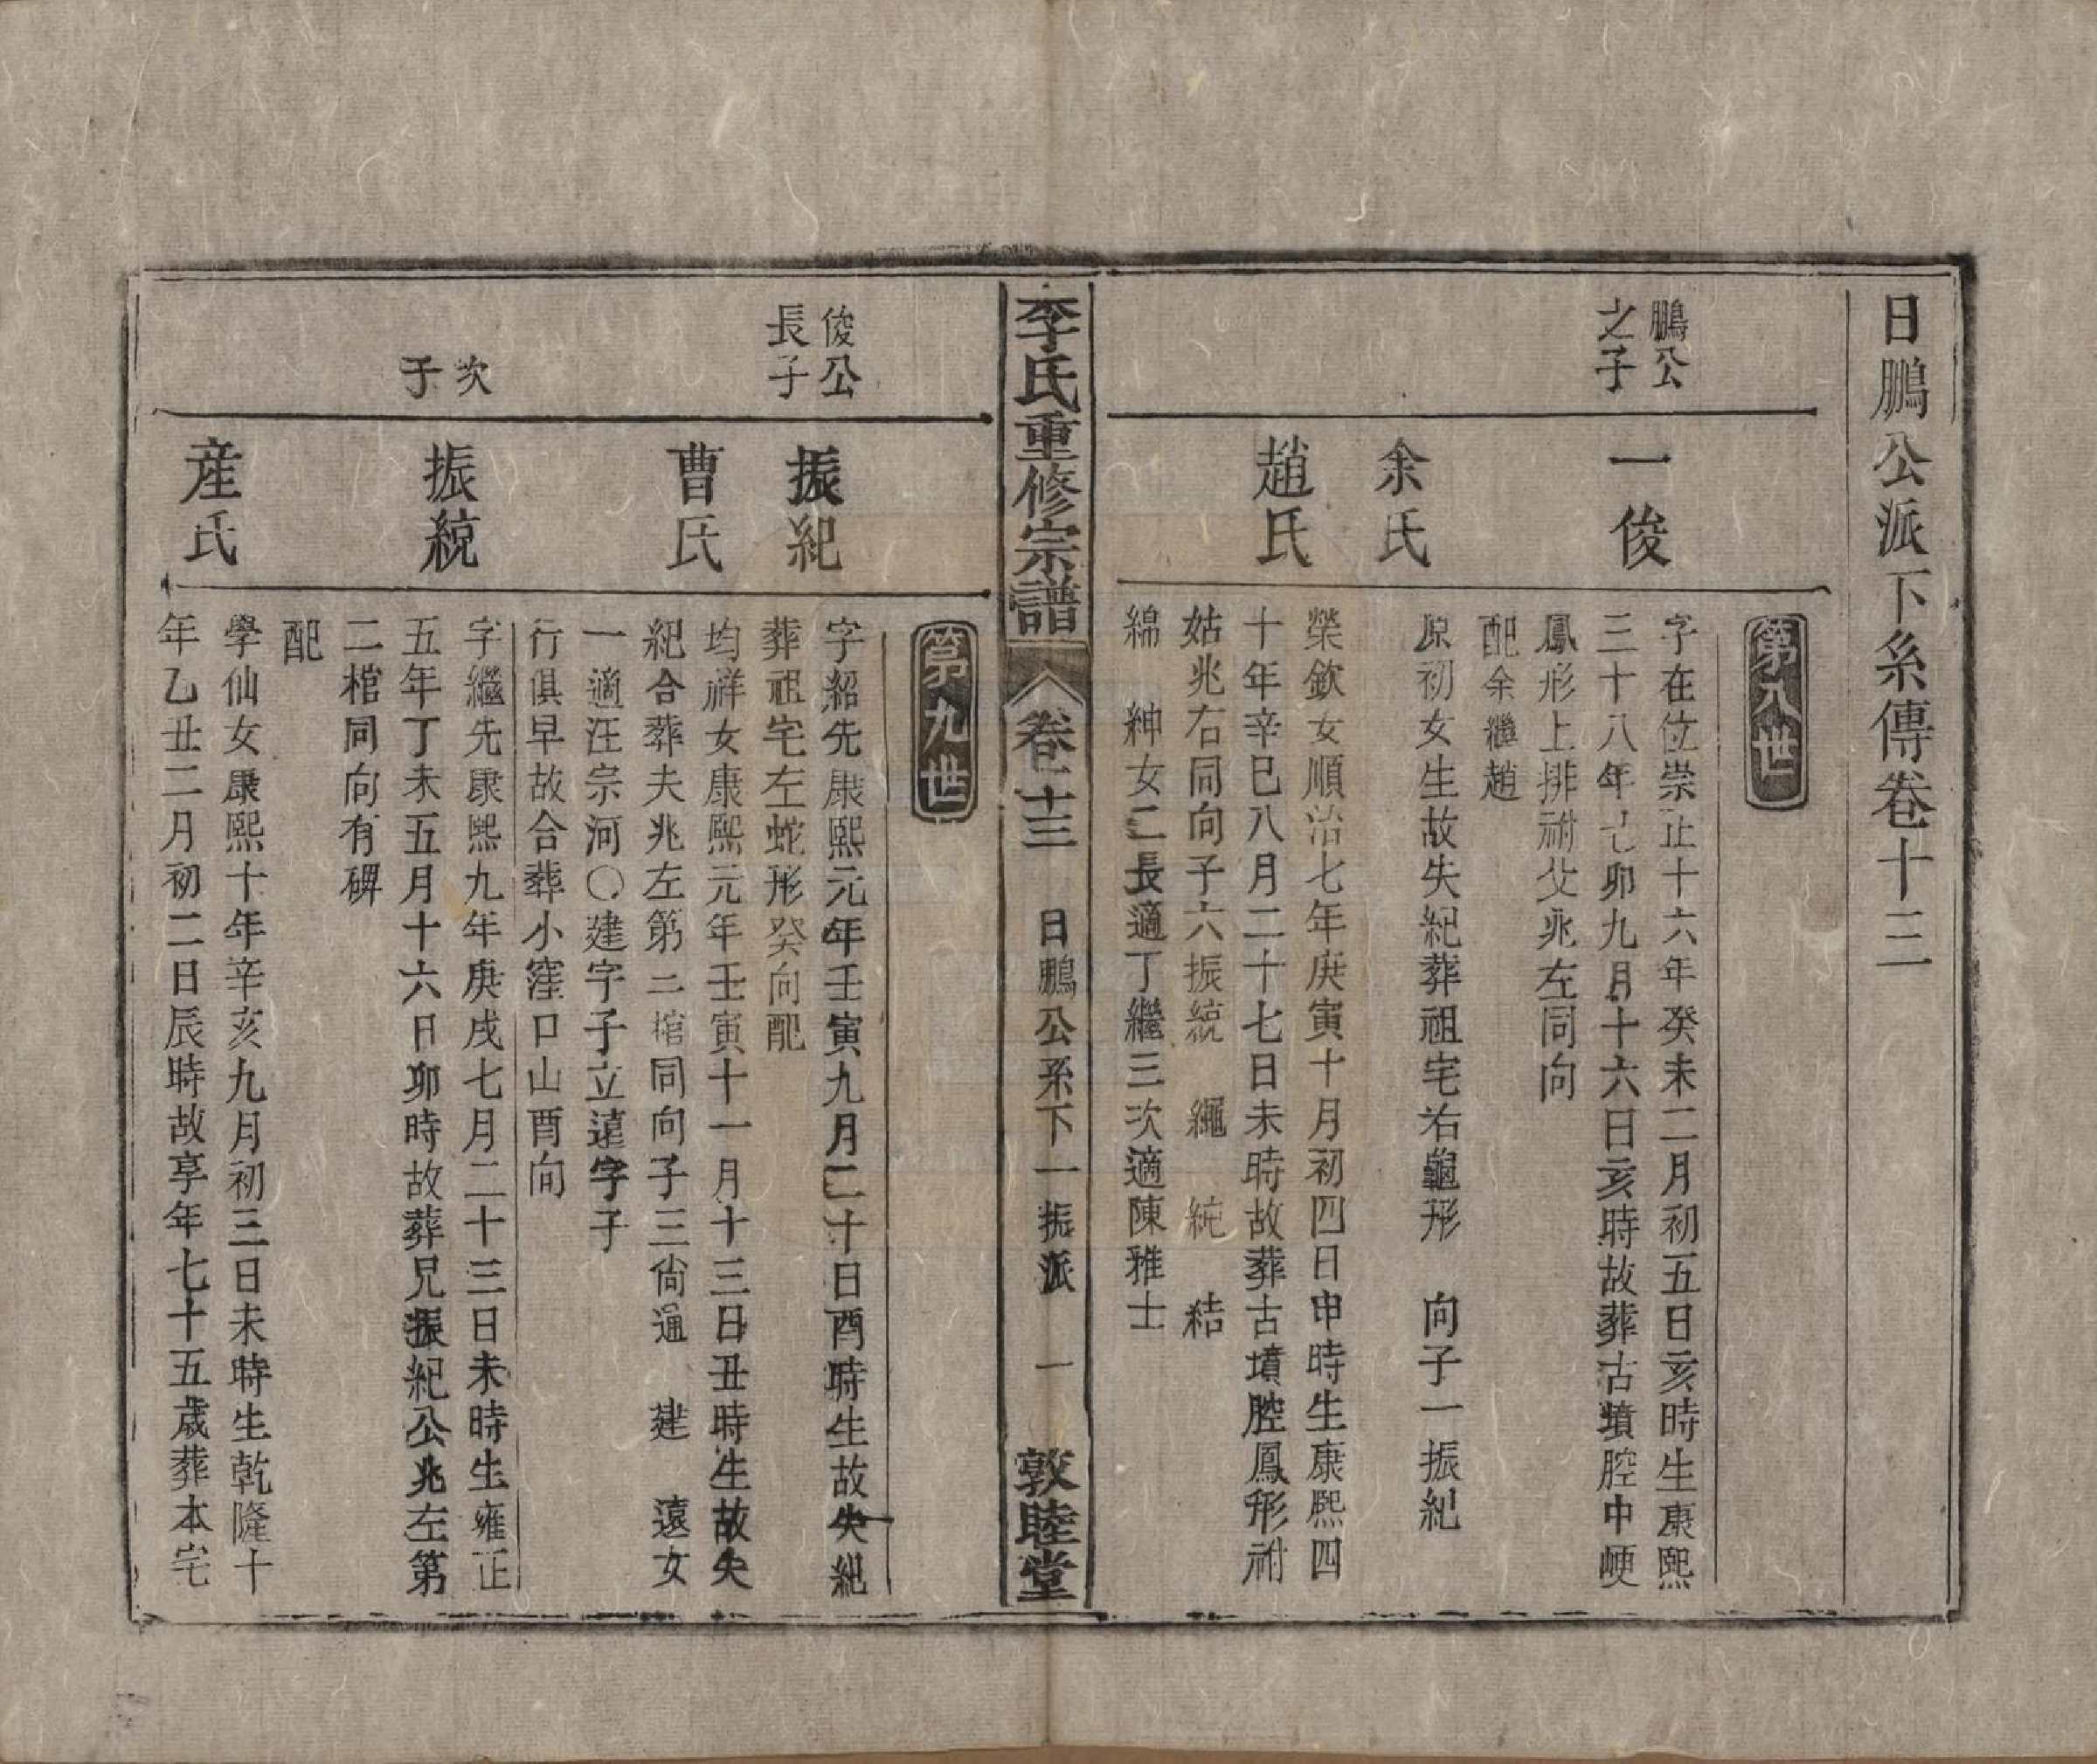 日鵬公派下糸傳卷十三
第八世
鵬公
之子
一俊
字在位崇正十六年癸未二月初五日亥時生康熙
三十八年己卯九月十六日亥時故葬古墳腔中崾
鳳形上排祔父兆左同向
配余繼趙
余氏
原初女生故失紀葬祖宅右龜形 向子一振紀
趙氏
榮欽女順治七年庚寅十月初四日申時生康熙四
十年辛巳八月二十七日未時故葬古墳腔鳳形祔
姑兆右同向子六振統 繩 統 結
綿 紳女二長適丁繼三次適陳雅士
李氏重修宗譜 卷十三 日鵬公系下一振派 一 敦睦堂
第九世
俊公
長子
振紀
字紹先康熙元年壬寅九月二十日酉時生故失紀
葬祖宅左蛇形癸向配
曹氏
均祥女康熙元年壬寅十一月十三日丑時生故失
紀合葬夫兆左第二棺同向子三尙通 建 遠女
一適汪宗河〇建字子立遠字子
行俱早故合葬小窪口山酉向
次
子
振統
字繼先康熙九年庚戌七月二十三日未時生雍正
五年丁未五月十六日卯時故葬兄振紀公兆左第
二棺同向有碑
配
産氏
學仙女康熙十年辛亥九月初三日未時生乾隆十
年乙丑二月初二日辰時故享年七十五歲葬本宅